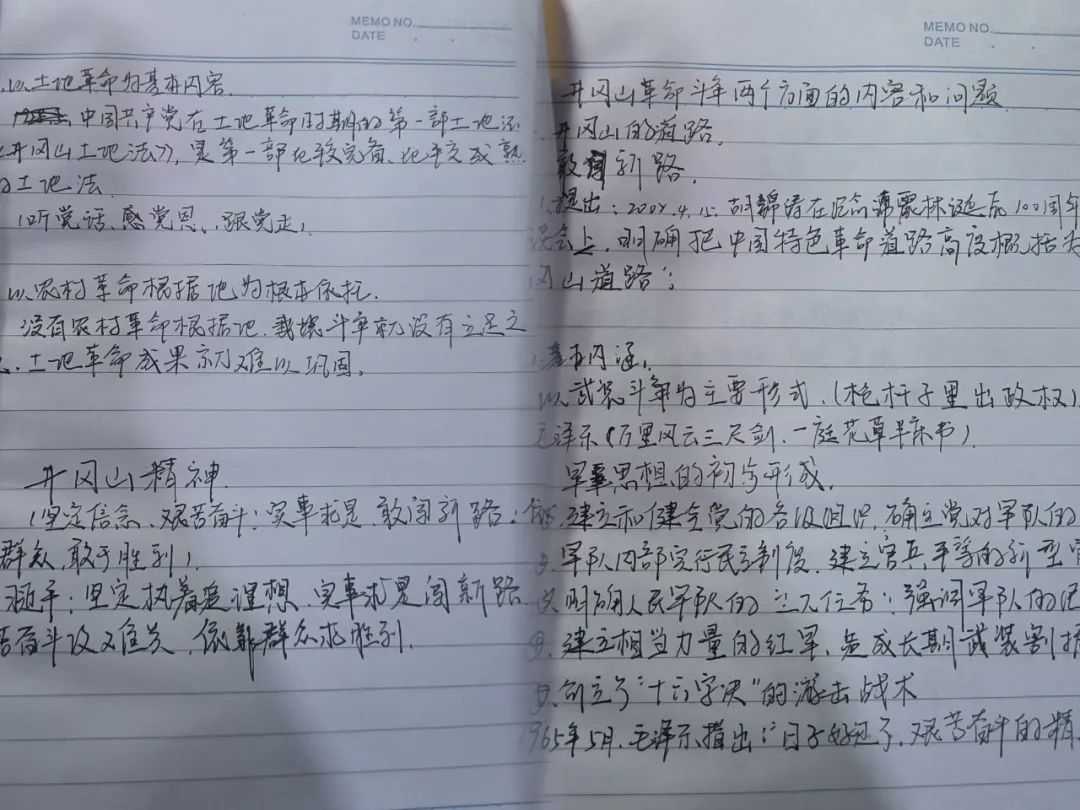 MEMO NO.
DATE
以土地革命为基本内容.
中国共产党在土地革命时期的第一部土地法
《井冈山土地法》，是第一部比较完备、比较成熟
的土地法.
（听党话、感党恩、跟党走）
以农村革命根据地为根本依托.
没有农村革命根据地.斗争就没有立足之
土地革命成果就难以巩固.
井冈山精神.
（坚定信念、艰苦奋斗；实事求是、敢闯新路；依
群众，敢于胜利）
习近平：坚定执着理想、实事求是闯新路
苦奋斗攻难关、依靠群众求胜利.
MEMO NO.
DATE
井冈山革命斗争两个方面的内容和问题
井冈山的道路.
敢闯新路.
1.提出：4.12.胡锦涛在纪念诞辰100周年
谈会上，明确把中国特色革命道路高度概括为
冈山道路”；
2.基本内涵.
以武装斗争为主要形式.（枪杆子里出政权）
毛泽东（万里风云三尺剑.一庭花草半床书）
军事思想的初步形成.
建立和健全党的各级组织，确立党对军队的
军队内部实行民主制度.建立官兵平等的新型官
明确人民军队的三大任务；强调军队的纪
④.建立相当力量的红军，造成长期武装割据
⑤.创立了“十六字诀”的游击战术
1965年5月.毛泽东指出：“日子好过了.艰苦奋斗的精